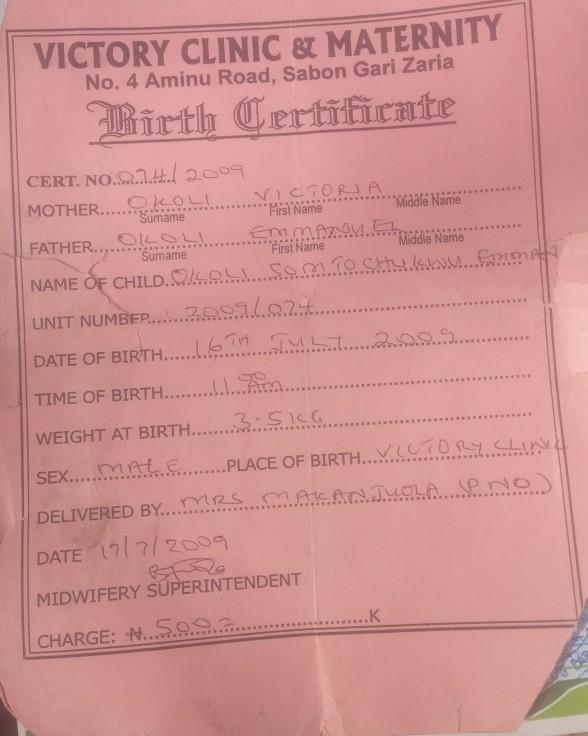 VICTORY CLINIC & MATERNITY
No. 4 Aminu Road, Sabon Gari Zaria
Birth Certificate
CERT. NO. 074/2009
MOTHER OKOLI VICTORIA
Surname First Name Middle Name
FATHER OKOLI EMMANUEL
Surname First Name Middle Name
NAME OF CHILD. OKOLI SOMTOCHUKWU EMMAN
UNIT NUMBER 2009/074
DATE OF BIRTH 16TH JULY 2009
TIME OF BIRTH 11 00 AM
WEIGHT AT BIRTH 3.5KG
SEX MALE PLACE OF BIRTH VICTORY CLINIC
DELIVERED BY MRS MAKANJUOLA (PNO)
DATE 17/7/2009
MIDWIFERY SUPERINTENDENT
CHARGE: ₦ 500= K